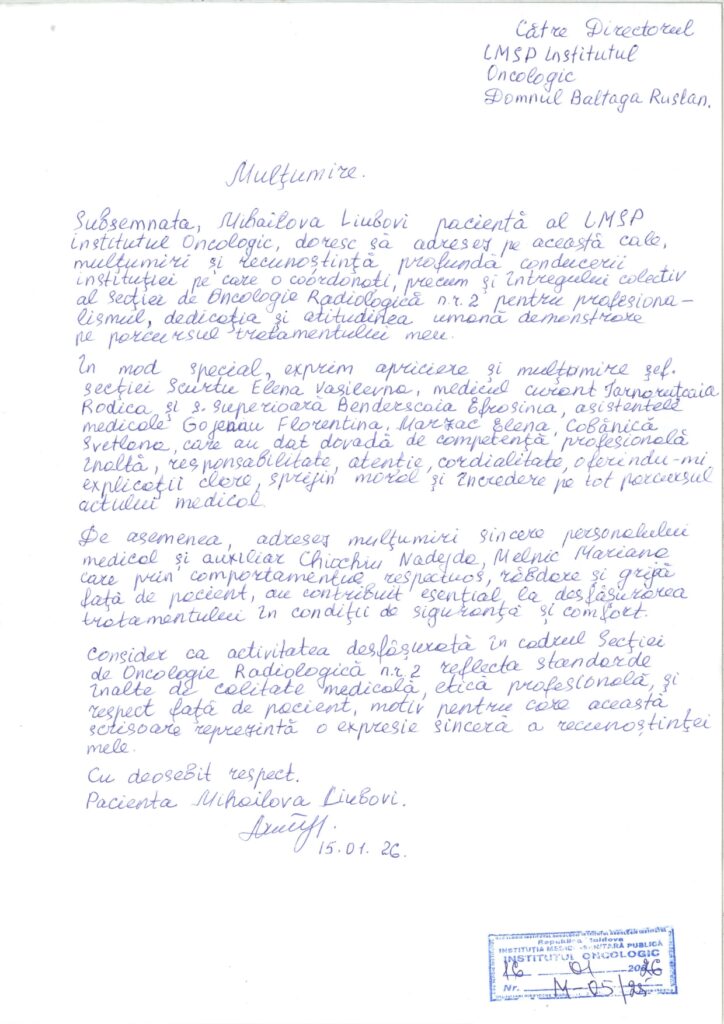 Către Directorul
IMSP Institutul
Oncologic
Domnul Baltaga Ruslan.
Mulţumire.
Subsemnata, Mihailova Liubovi pacientă al IMSP
Institutul Oncologic, doresc să adresez pe această cale,
mulţumiri şi recunoştinţă profundă conducerii
instituţiei pe care o coordonaţi, precum şi întregului colectiv
al Secţiei de Oncologie Radiologică n.r. 2 pentru profesiona-
lismul, dedicaţia şi atitudinea umană demonstrare
pe parcursul tratamentului meu.
In mod special, exprim apriciere şi mulţumire şef.
secţiei Scurtu Elena Vasilevna, medicul curant
Rodica şi s. superioară Benderscaia Efrosinia, asistentele
medicale Florentina, Marzac Elena, Cobânică
Svetlana, care au dat dovadă de competenţă profesională
înaltă, responsabilitate, atenţie, cordialitate, oferindu-mi
explicaţii clare, sprijin moral şi încredere pe tot parcursul
actului medical.
De asemenea, adresez mulţumiri sincere personalului
medical şi auxiliar Chiochiu Nadejda, Melnic Mariana
care prin comportamentul respectuos, răbdare şi grijă
faţă de pacient, au contribuit esenţial la desfăşurarea
tratamentului în condiţii de siguranţă şi comfort.
Consider ca activitatea desfăşurată în cadrul Secţiei
de Oncologie Radiologică n.r. 2 reflecta standarde
înalte de calitate medicală, etică profesională, şi
respect faţă de pacient, motiv pentru care această
scrisoare reprezintă o expresie sinceră a recunoştinţei
mele.
Cu deosebit respect.
Pacienta Mihailova Liubovi.
15.01.26.
Republica Moldova
INSTITUŢIA MEDICO-SANITARĂ PUBLICĂ
INSTITUTUL ONCOLOGIC
16 01 2026
Nr. M-05/25